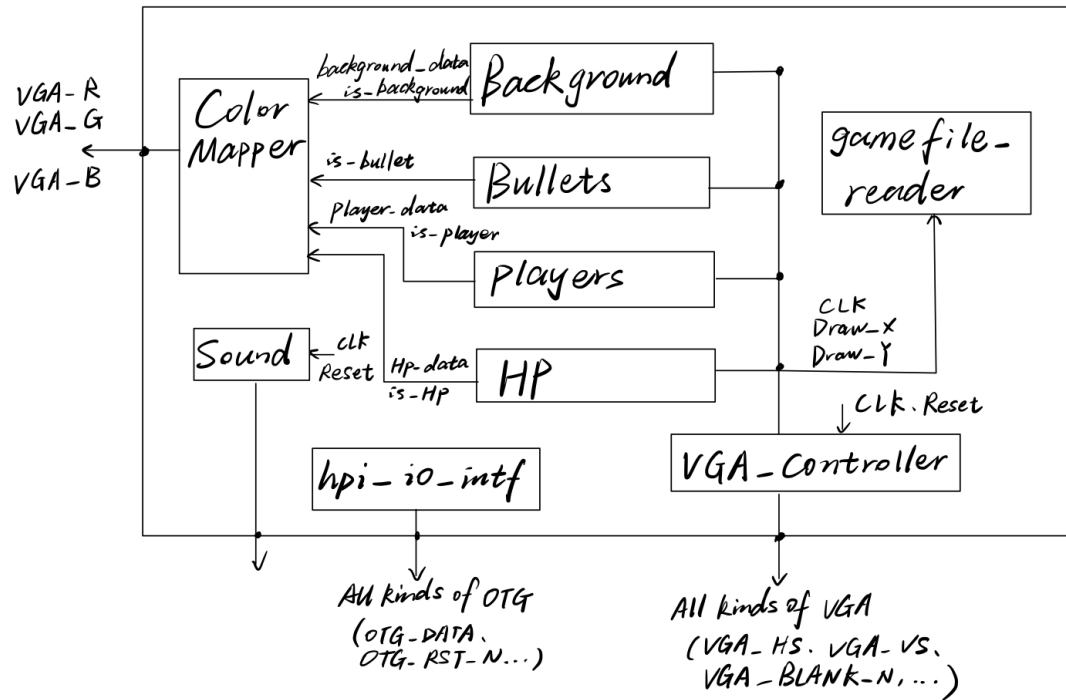 VGA-R
VGA-G
VGA-B
Color
Mapper
background-data
is-background
Background
is-bullet
Bullets
Player-data
is-player
players
Sound
CLK
Reset
Hp-data
is-Hp
HP
gamefile-
reader
CLK
Draw-X
Draw-Y
CLK. Reset
VGA-Controller
hpi-io-intf
All kinds of OTG
(OTG-DATA、
OTG-RST-N...)
All kinds of VGA
(VGA-HS、VGA-VS、
VGA-BLANK-N, ...)